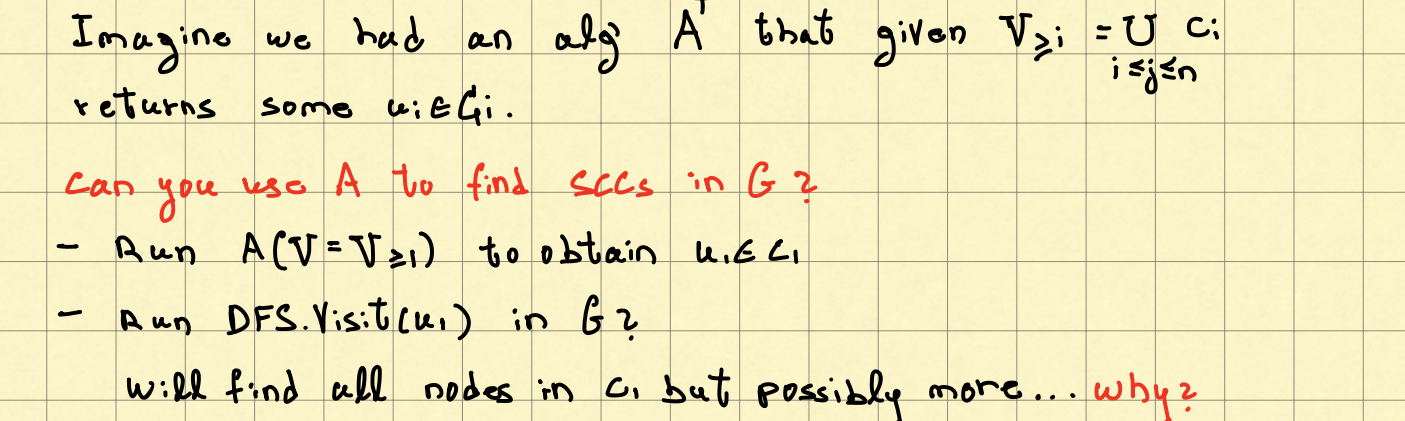 Imagine we had an alg A that given V≥i = ∪ Ci
i≤j≤n
returns some ui ∈ Ci.
Can you use A to find SCCs in G?
- Run A(V = V≥1) to obtain u1 ∈ C1
- Run DFS.Visit(u1) in G?
Will find all nodes in C1 but possibly more... why?